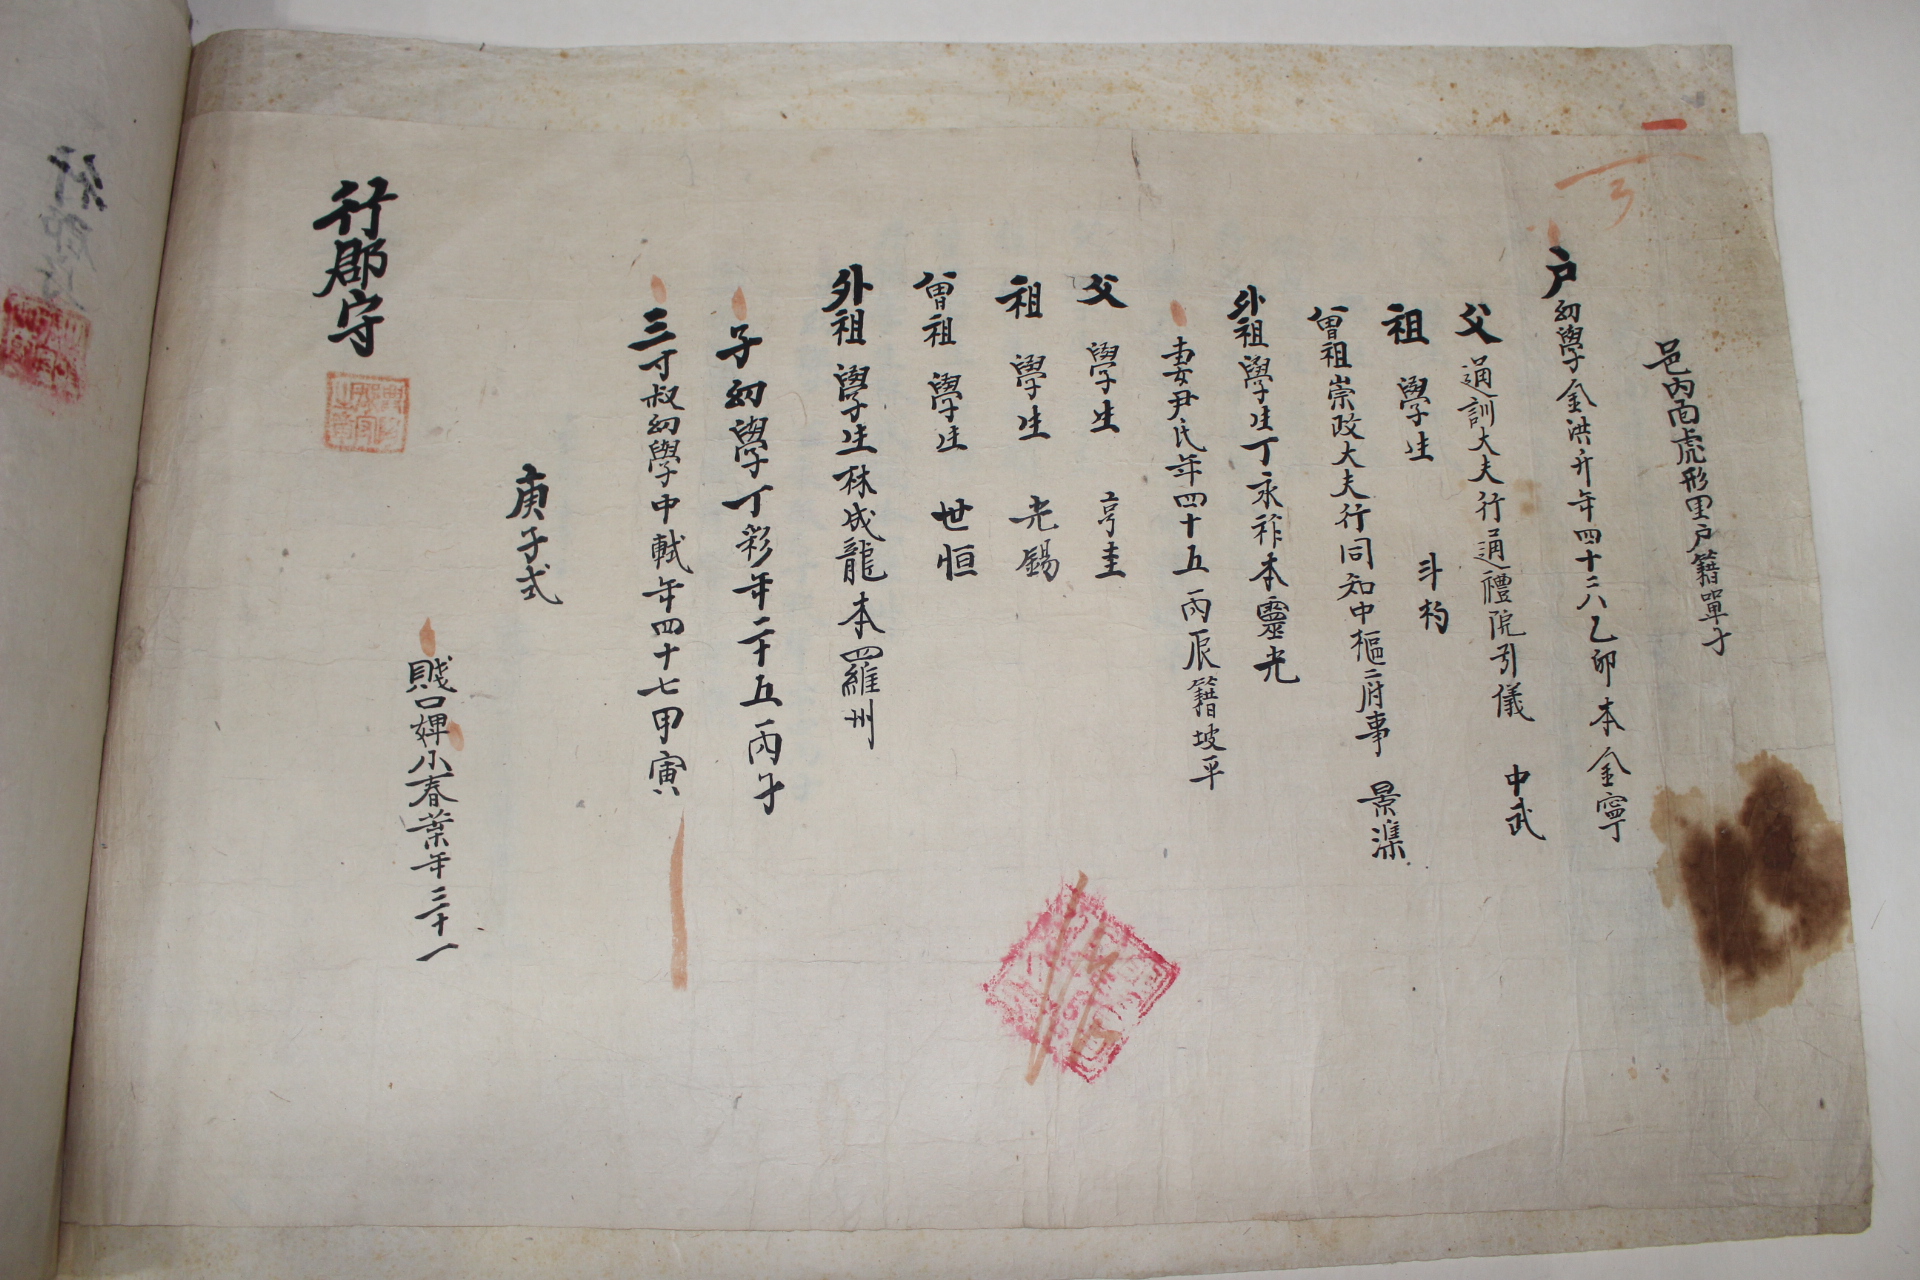 邑內面虎形里戶籍單子
戶幼學金洪升年四十六乙卯本金寧
父通訓大夫行通禮院引儀 中武
祖 學生 斗杓
曾祖崇政大夫行同知中樞府事 景濼
外祖學生丁永祚本靈光
妻尹氏年四十五丙辰籍坡平
父 學生 亨圭
祖 學生 光錫
曾祖 學生 世恒
外祖 學生林成龍本羅州
子幼學丁彩年二十五丙子
三寸叔幼學中軾年四十七甲寅
庚子式
賤口婢小春葉年三十一
行郡守